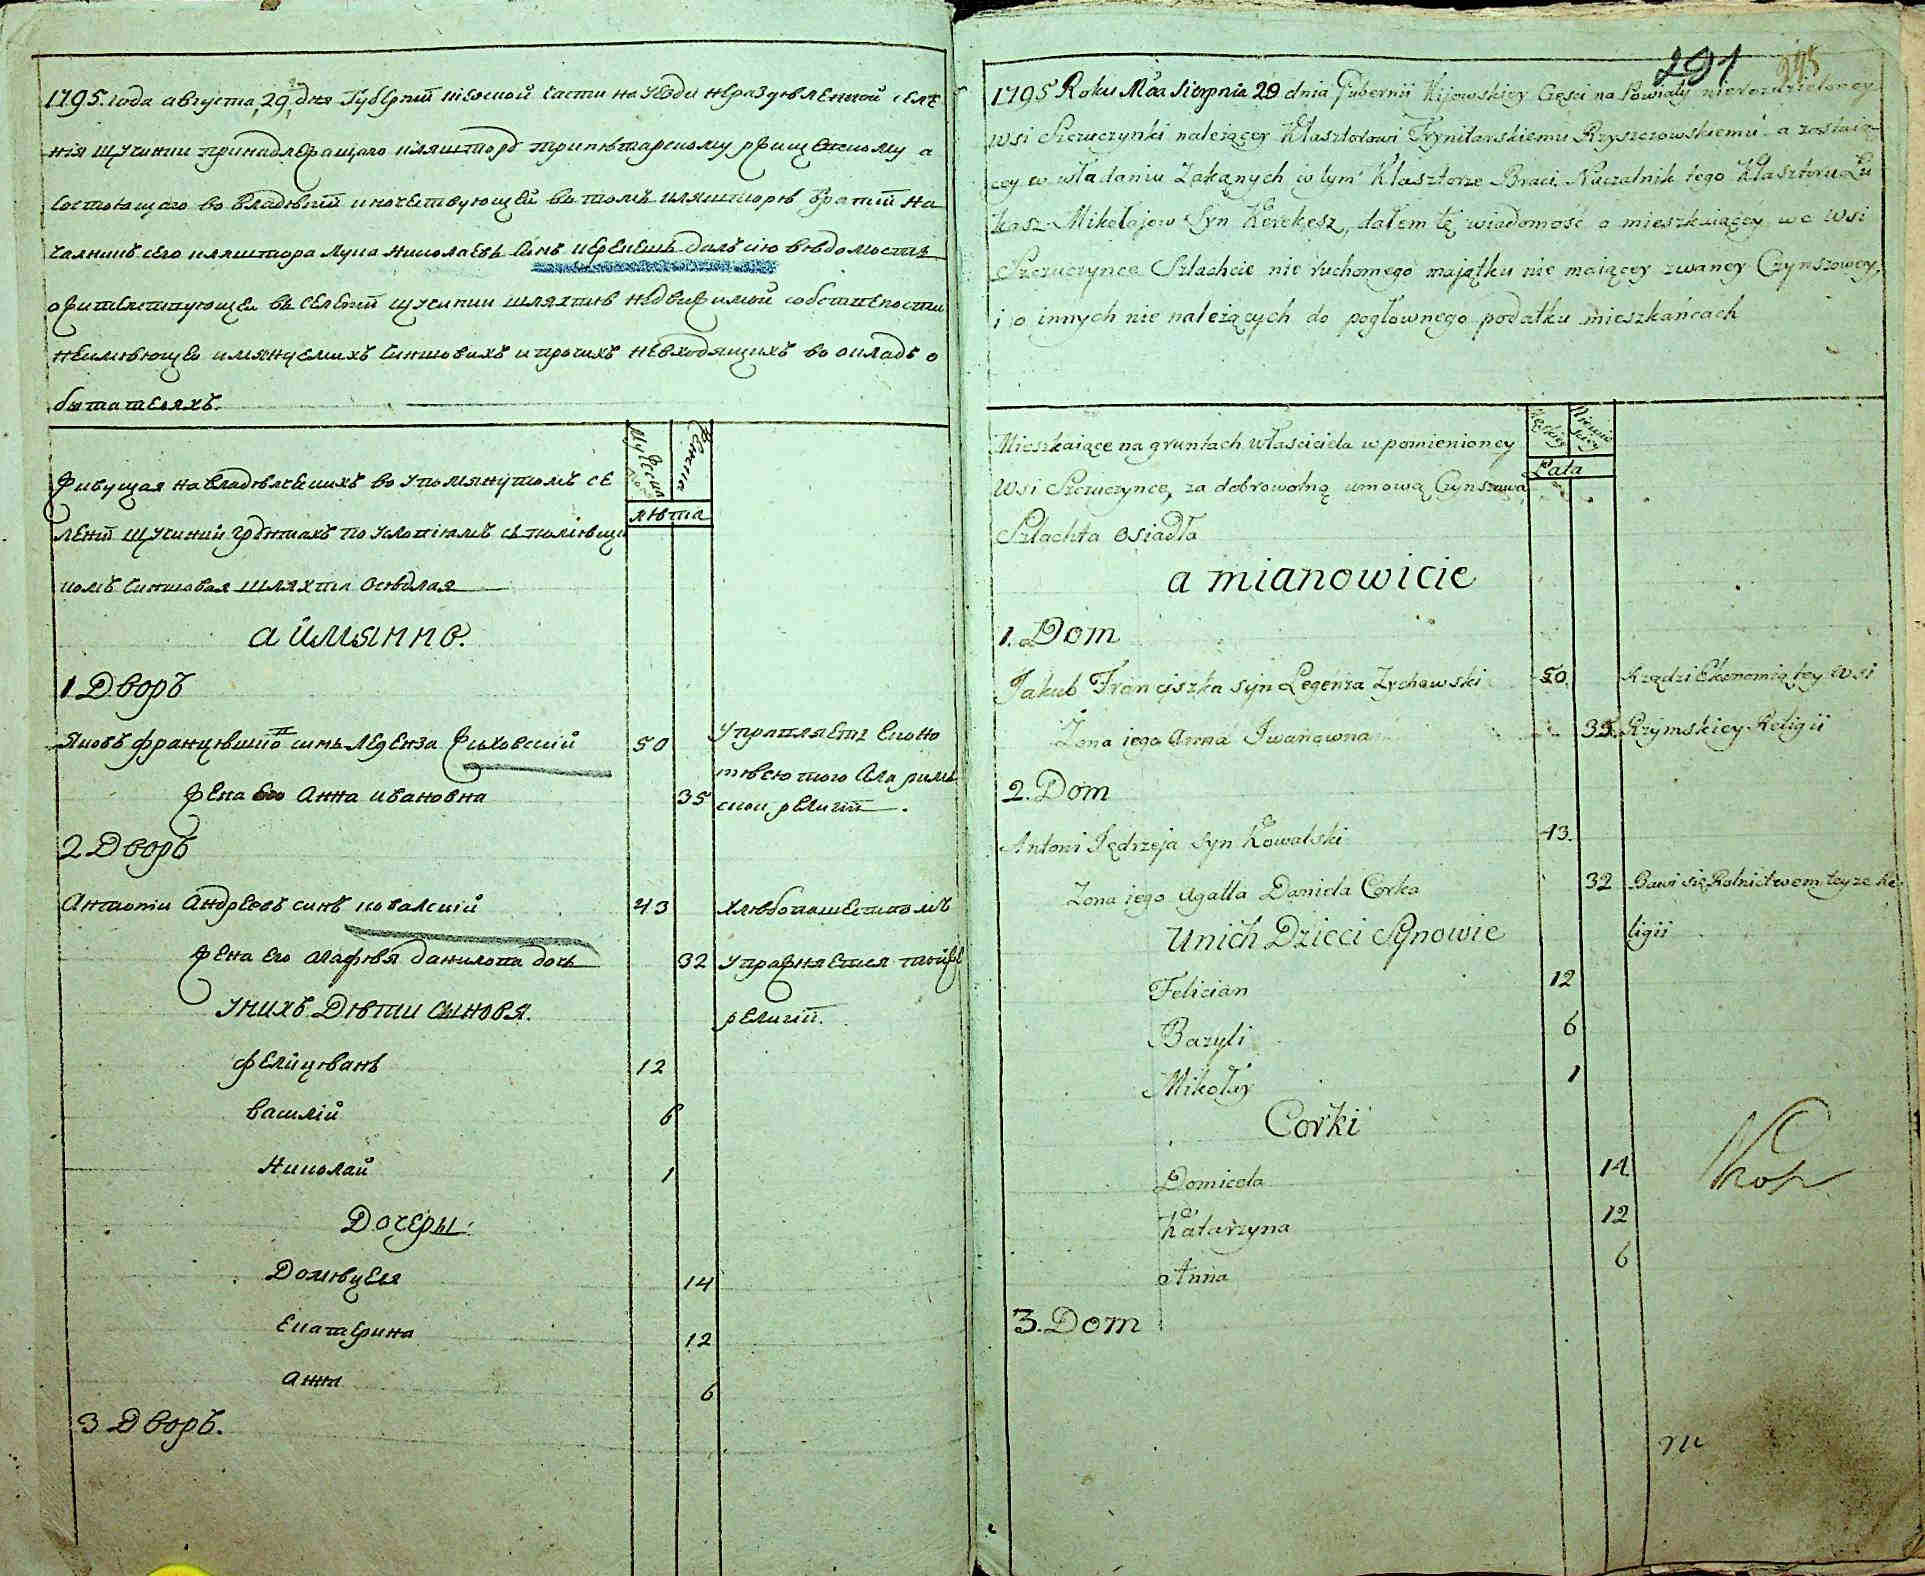 1795 года августа 29 дня Губерніи кіевской Части на уѣзди нераздѣленной селе
нія щучинки принадлежащаго кляштору тринѣтарскому ржищевскому а
состоящаго во владѣніи иночествующей въ томъ кляшторѣ братіи На
чалникъ сего кляштора Лука николаевъ Сынъ керекешъ далъ сію вѣдомость
о жителствующей въ селеніи щучинки шляхтѣ недвижимой собственности
неимѣющей имянуемихъ Чиншовихъ и прочихъ невходящихъ во окладъ о
бытателяхъ.
Мужеска
Женска
лѣта
Живущая на владѣлческихъ во упомянутомъ се
леніи щучинки грунтахъ по условіямъ съ помѣщи
комъ Чиншовая шляхта Осѣдлая
а имянно.
1 Дворъ
Яковъ францѣшка синъ Легенза Жиховскій 50 управляетъ еконо
жена его Анна ивановна 35 мѣею того села рим
ской религіи.
2 Дворъ
Антоній Андреевъ синъ ковалскій 43 хлѣбопашеством
жена его Агафѣя данилова дочь 32 упражняется той же
у нихъ Дѣти сыновя. религіи.
фелицѣанъ 12
василій 6
николай 1
Дочеры
Домѣцеля 14
екатерина 12
анна 6
3 Дворъ.
291 245
1795 Roku Mca Sierpnia 29 dnia Gubernii Kijowskiey Części na Powiaty nierozdzieloney
wsi Szczuczynki należącey Klasztorowi Trynitarskiemu Rzyszczowskiemu a zostaią-
cey w władaniu Zakąnych w tym Klasztorze Braci. Naczelnik tego Klasztoru Łu
kasz Mikołajow Syn Kerekesz, dałem tę wiadomość o mieszkaiącey we wsi
Szczuczynce Szlachcie nie ruchomego majątku nie maiącey zwaney Czynszowey,
i o innych nie należących do pogłownego podatku mieszkańcach
Lata
Mieszkaiące na gruntach właściciela w pomienioney
wsi Szczuczynce, za dobrowolną umową Czynszowa
Szlachta osiadła
a mianowicie
1. Dom
Jakub Franciszka syn Legenza Zychowski 50. Rządzi Ekonomią tey wsi
Zona iego Anna Iwanowna 35. Rzymskiey Religii
2. Dom
Antoni Jędrzeja syn Kowalski 43.
Zona iego Agatta Daniela Corka 32 Bawi się Rolnictwem teyze Re
Unich Dzieci Synowie ligii
Felician 12
Bazyli 6
Mikołay 1
Corki
Domicela 14
Katarzyna 12
Anna 6
3. Dom